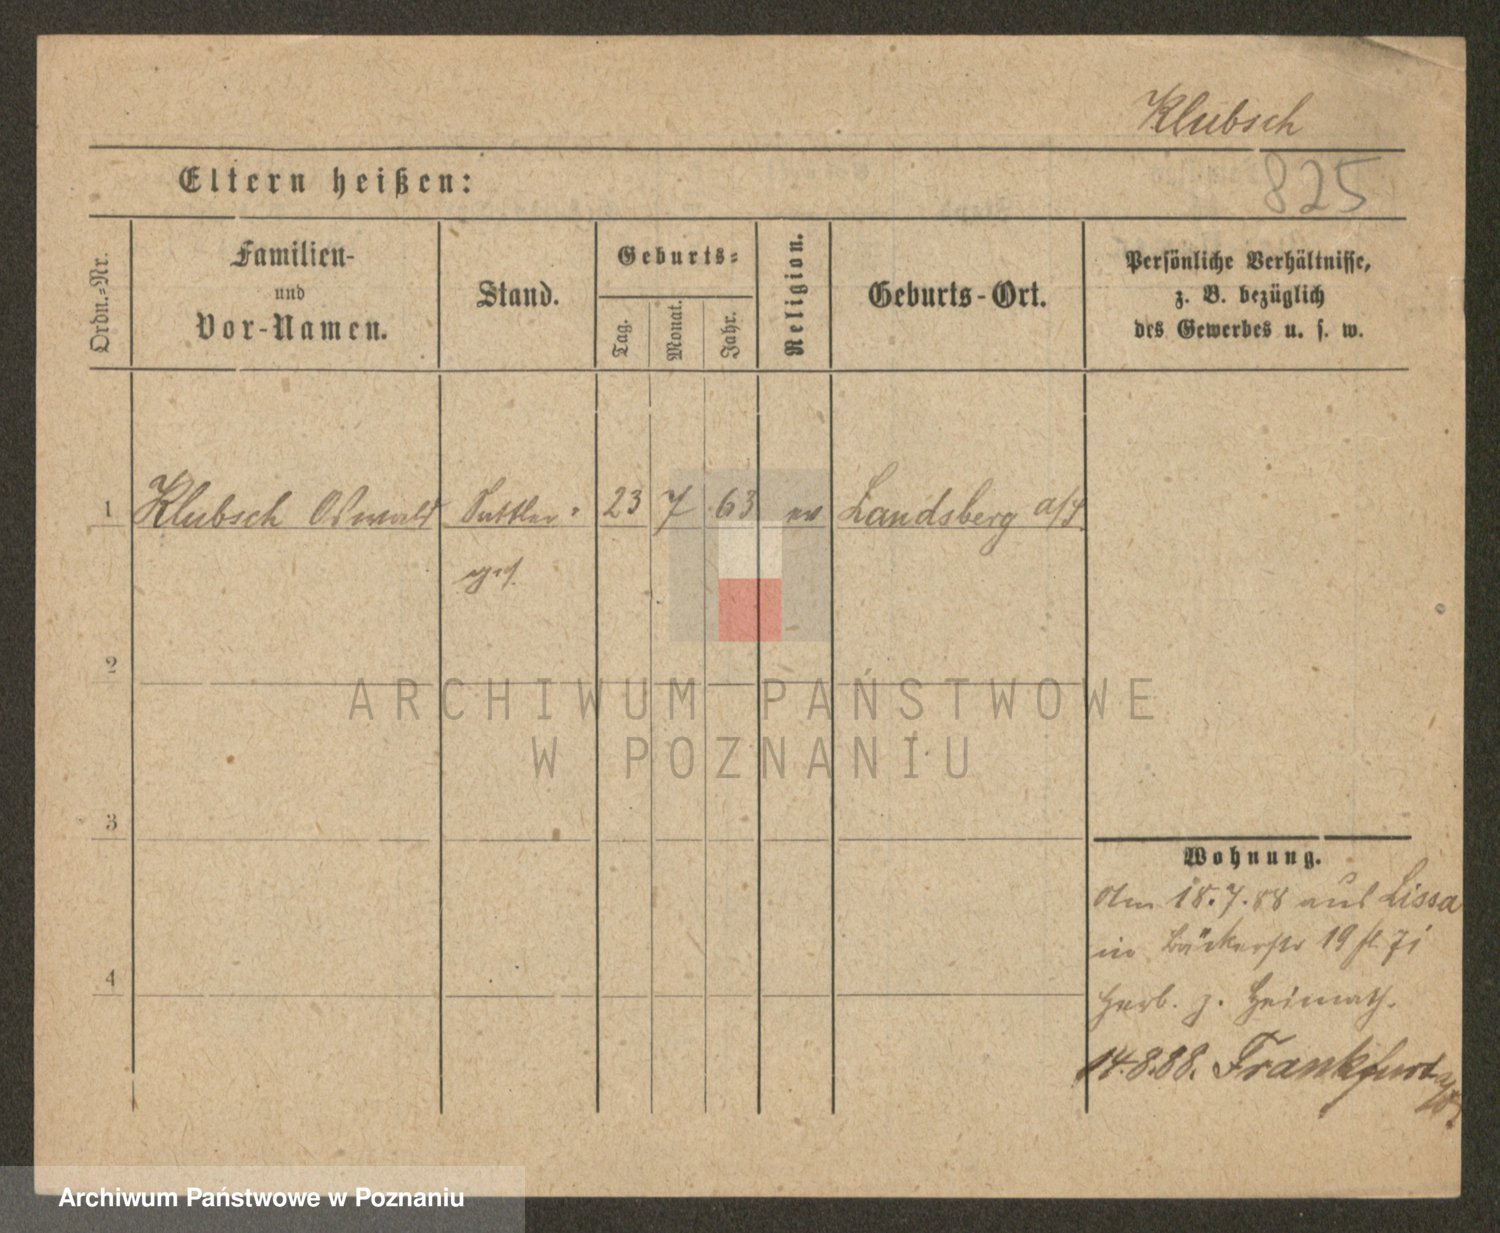 Klubsch
Eltern heißen:
825
Ordn.=Nr.
Familien-
und
Vor-Namen.
Stand.
Geburts=
Tag.
Monat.
Jahr.
Religion.
Geburts-Ort.
Persönliche Verhältnisse,
z. B. bezüglich
des Gewerbes u. s. w.
1 Klubsch Oswald Sattler= 23 7 63 ev Landsberg a/
ges.
2
3
4
Wohnung.
Am 18.7.88 aus Lissa
in Bäckerstr 19
Herb. z. Heimath.
14.8.88. Frankfurt
ARCHIWUM PAŃSTWOWE
W POZNANIU
Archiwum Państwowe w Poznaniu